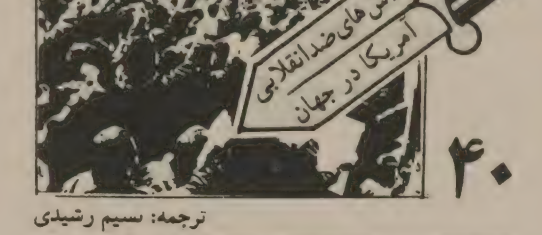 های ضدانقلابی
آمریکا در جهان
۴۰
ترجمه: نسیم رشیدی